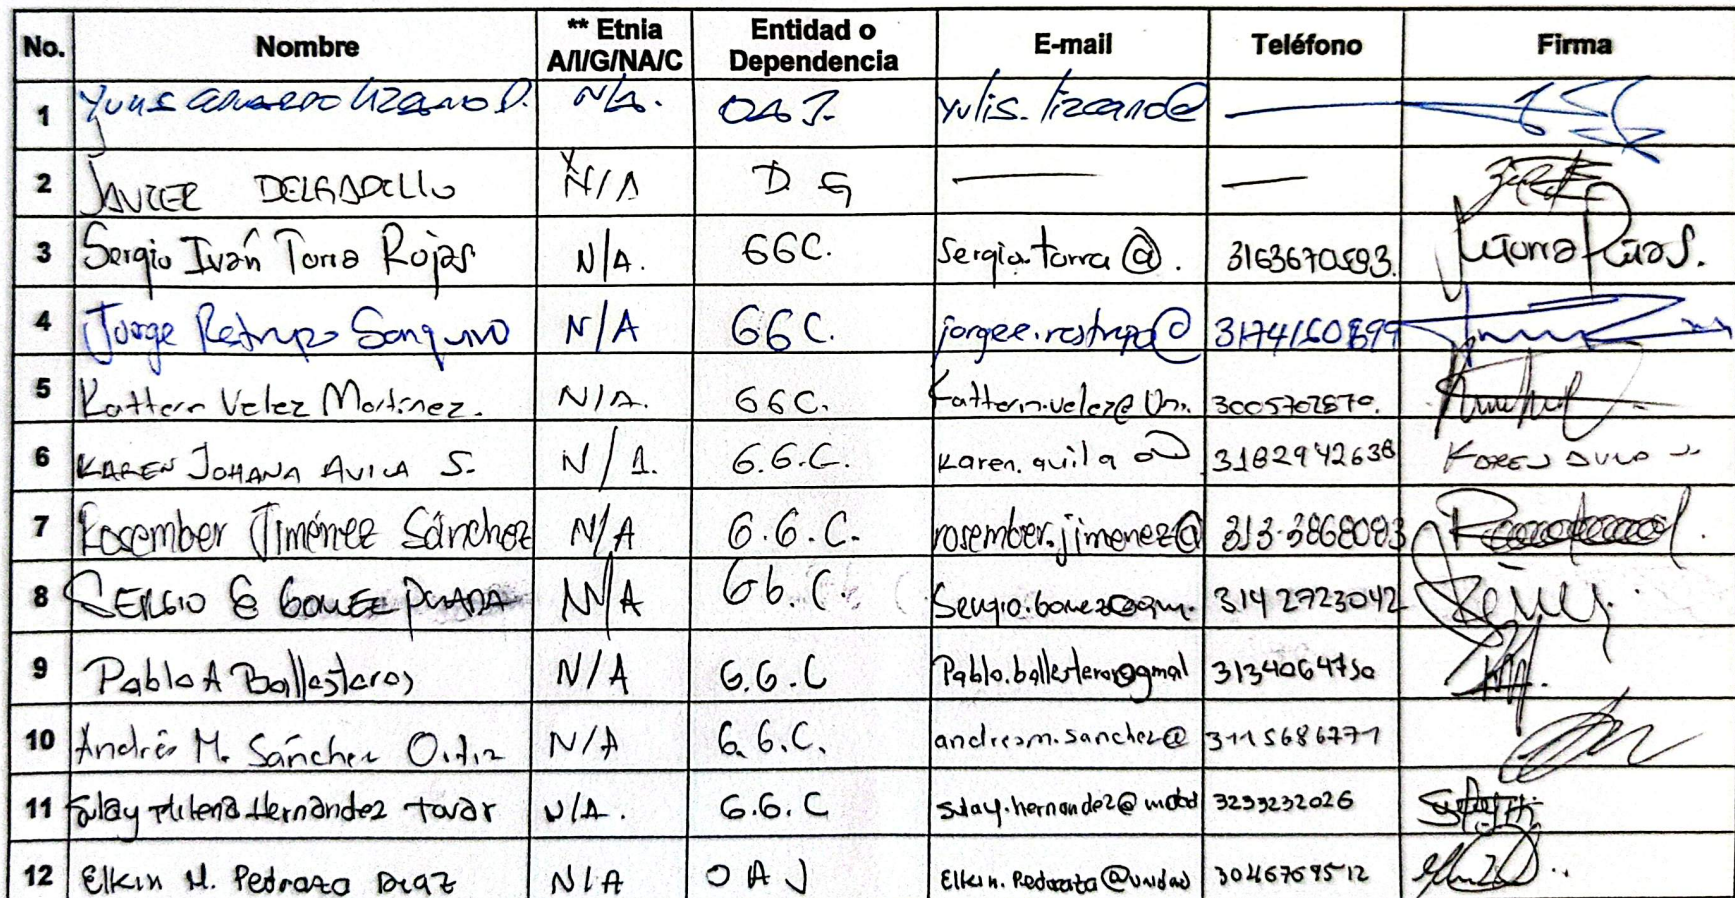 No. Nombre ** Etnia A/I/G/NA/C Entidad o Dependencia E-mail Teléfono Firma
1 N/A. OAJ. yulis.lizcano@ —
2 JAVIER DELGADILLO N/A D G — —
3 Sergio Iván Torra Rojas N/A. GGC. Sergio.torra@.
4 Jorge Restrepo Sanguino N/A GGC. jorgee.restrepo@
5 Kattern Velez Martinez. N/A. GGC. Kattern.velez@Un. 3005702870.
6 KAREN JOHANA AVILA S. N/A. G.G.C. Karen.avila@ 3182942638 KAREN AVILA
7 Rosember Jiménez Sánchez N/A G.G.C. rosember.jimenez@ 313-3868083
8 SERGIO E GOMEZ N/A GG.C. Sergio.gomez@ 3142723042
9 Pablo A Ballesteros N/A G.G.C Pablo.ballesteros@gmal 3134064750
10 Andrés M. Sánchez Ortiz N/A G.G.C. andresm.sanchez@ 3115686771
11 Sulay Milena Hernandez Tovar N/A. G.G.C Sulay.hernandez@ 3233232026
12 Elkin M. Pedraza Diaz N/A O A J Elkin.Pedraza@unidad